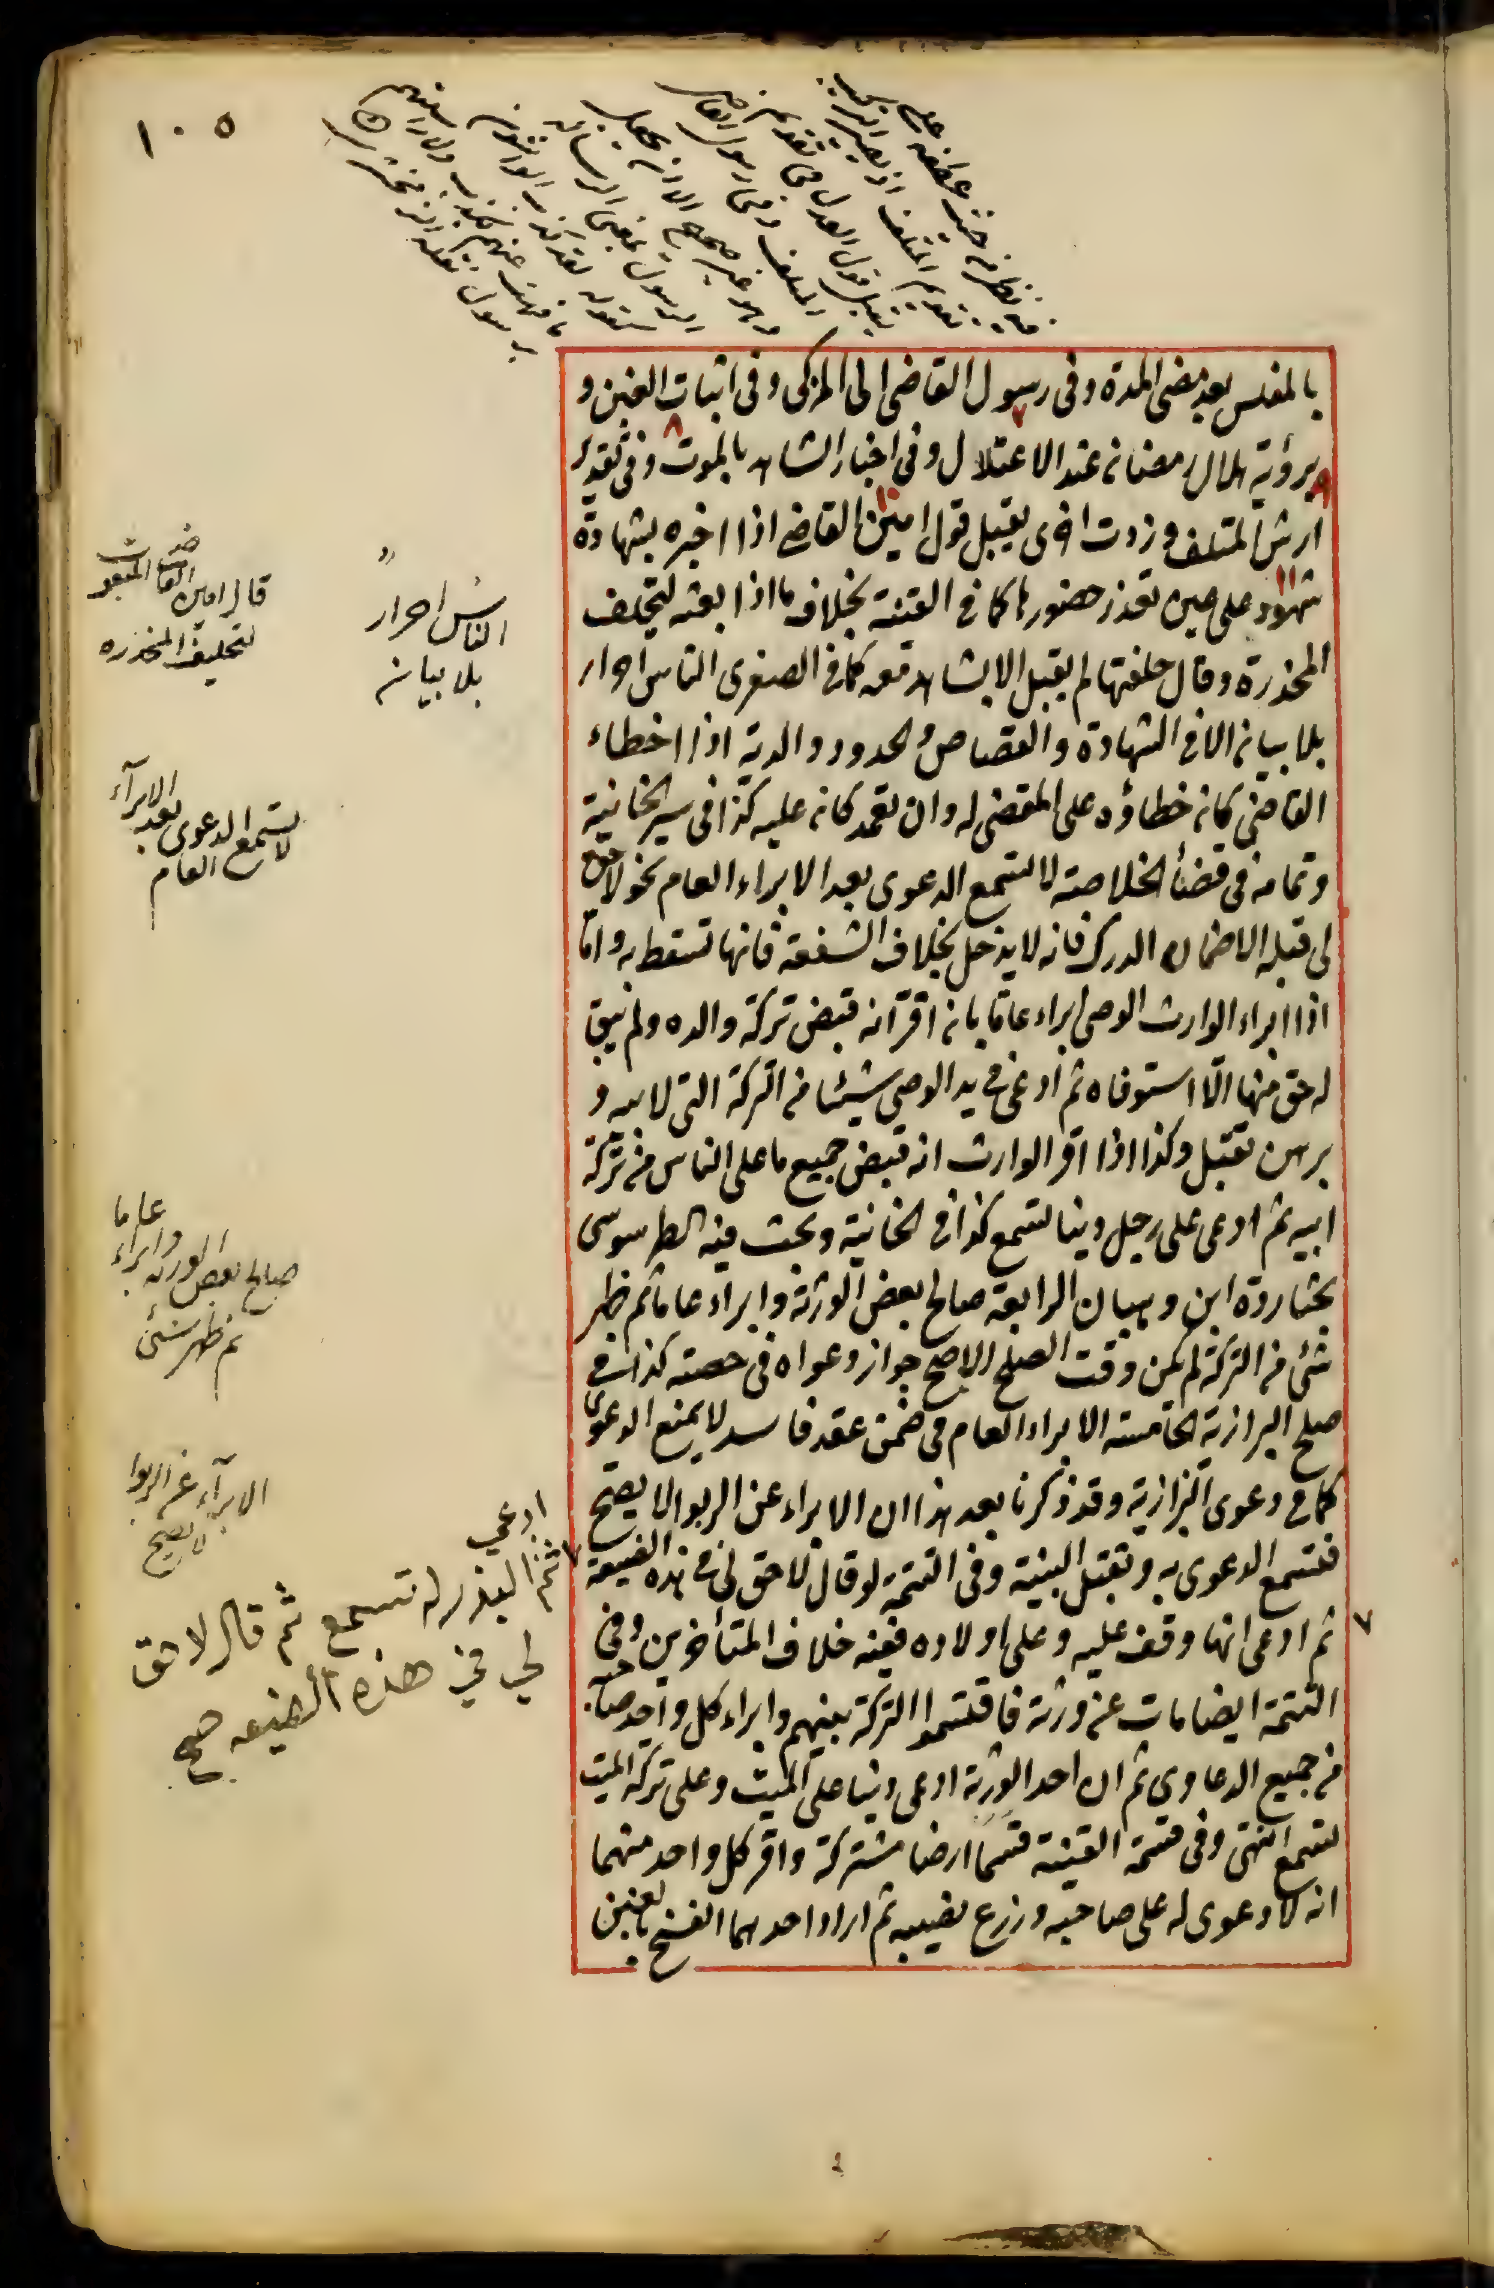 ١٠٥
بالمفلس بعد مضى المدة وفى رسول القاضى الى المزكى وفى اثبات العنين و
برؤية هلال رمضان عند الاعتلال وفى اخبار الشاهد بالموت وفى تقدير
ارش المتلف وزدت اخرى يقبل قول امين القاضى اذا اخبره بشهادة
شهود على عين تعذر حضورها كما فى القنية بخلاف ما اذا بعثه لتحلف
المخدرة وقال حلفتها لم يقبل الا بشاهد معه كما فى الصغرى الناس احرار
بلا بيان الا فى الشهادة والقصاص والحدود والدية اذا اخطاء
القاضى كان خطاؤه على المقضى له وان تعمد كان عليه كذا فى سير الخانية
وتمامه فى قضاء الخلاصة لا تسمع الدعوى بعد الابراء العام نحو لا حق
لى قبله الا ضمان الدرك فانه لا يدخل بخلاف الشفعة فانها تسقط به واما
اذا ابراء الوارث الوصى ابراء عاما بان اقر انه قبض تركة والده ولم يبق
له حق منها الا استوفاه ثم ادعى فى يد الوصى شيئا من التركة التى لابيه و
برهن تقبل وكذا اذا اقر الوارث انه قبض جميع ما على الناس من تركة
ابيه ثم ادعى على رجل دينا تسمع كذا فى الخانية وبحث فيه الطرسوسى
بحثا رده ابن وهبان الرابعة صالح بعض الورثة وابراء عاما ثم ظهر
شئ من التركة لم يكن وقت الصلح الاصح جواز دعواه فى حصته كذا فى
صلح البزازية الخامسة الابراء العام فى ضمن عقد فاسد لا يمنع الدعوى
كما فى دعوى البزازية وقد ذكرنا بعد هذا ان الابراء عن الربوا لا يصح
فتسمع الدعوى به وتقبل البينة وفى التتمة لو قال لا حق لى فى هذه الضيعة
ثم ادعى انها وقف عليه وعلى اولاده ففيه خلاف المتأخرين وفى
التتمة ايضا مات عن ورثة فاقتسموا التركة بينهم وابراء كل واحد صاحبه
من جميع الدعاوى ثم ان احد الورثة ادعى دينا على الميت وعلى تركة الميت
تسمع انتهى وفى قسمة القنية قسما ارضا مشتركة واقر كل واحد منهما
انه لا دعوى له على صاحبه وزرع نصيبه ثم اراد احدهما الفسخ بالغبن
قال امين القاضى المبعوث
لتحليف المخدره
الناس احرار
بلا بيان
لا تسمع الدعوى بعد الابرآء
العام
صالح بعض الورثه وابراء عاما
ثم ظهر شئ
الابرآء عن الربوا
لا يصح
ادعي
ثم البذر له تسمع ثم قال لا حق
لي في هذه الضيعه صح